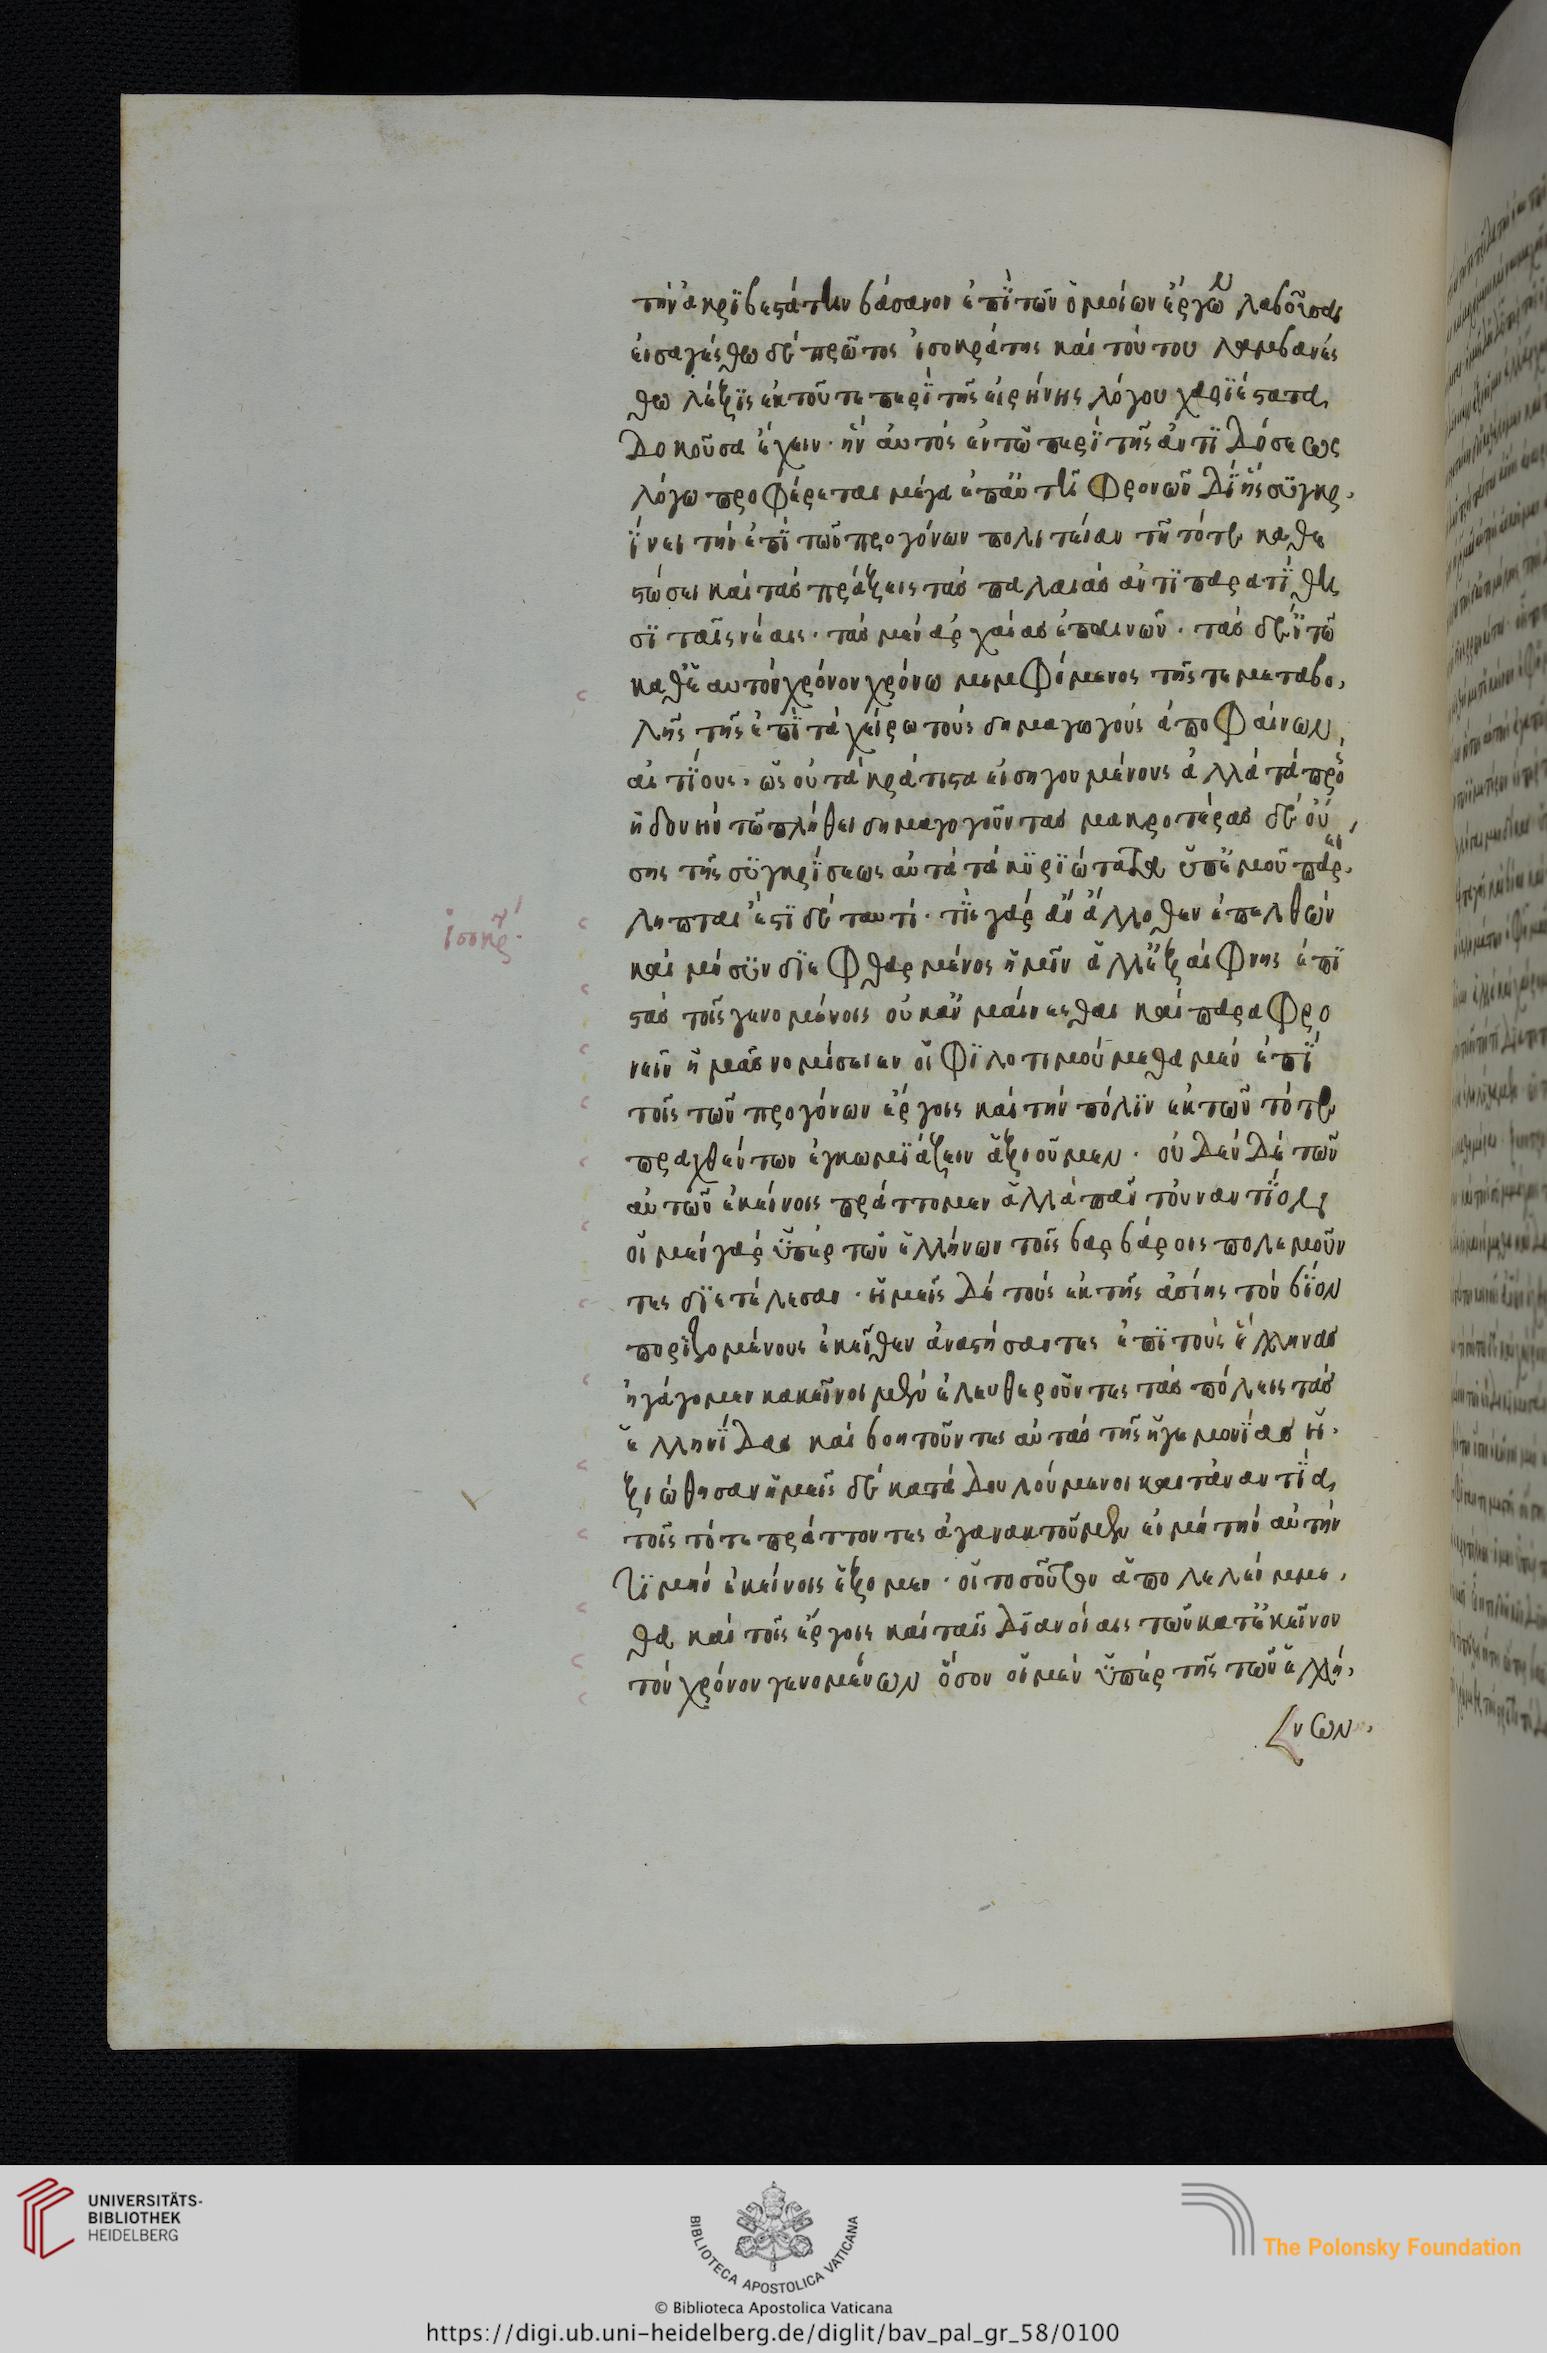 τὴν ἀκριβεστάτην βάσανον ἐπὶ τῶν ὁμοίων ἔργων λαβοῦσαι
εἰσαγέσθω δὲ πρῶτος ἰσοκράτης καὶ τούτου λαμβανέσ
θω λέξις ἐκ τοῦ τε περὶ τῆς εἰρήνης λόγου χαριέστατα
δοκοῦσα ἔχειν· ἣν αὐτὸς ἐν τῶ περὶ τῆς ἀντιδόσεως
λόγω προφέρεται μέγα ἐπ' αὐτῆ φρονῶν δι' ἧς συγκρ
ίνει τὴν ἐπὶ τῶν προγόνων πολιτείαν τῆ τότε καθε
στώσει καὶ τὰς πράξεις τὰς παλαιὰς ἀντιπαρατίθη
σι ταῖς νέαις· τὰς μὲν ἀρχαίας ἐπαινῶν· τὰς δ' ἐν τῶ
καθ' ἑαυτὸν χρόνον χρόνω μεμφόμενος τῆς τε μεταβο
λῆς τῆς ἐπὶ τὰ χείρω τοὺς δημαγωγοὺς ἀποφαίνων
αἰτίους· ὡς οὐ τὰ κράτιστα εἰσηγουμένους ἀλλὰ τὰ πρὸς
ἡδονὴν τῶ πλήθει δημαγογοῦντας μακροτέρας δὲ οὔ
σης τῆς συγκρίσεως αὐτὰ τὰ κυριώτατα ὑπ' ἐμοῦ παρεί
ληπται ἐστὶ δὲ ταυτί· τίς γὰρ ἂν ἄλλοθεν ἐπελθὼν
ἰσοκρ
καὶ μὴ συνδιεφθαρμένος ἡμῖν ἀλλ' ἐξαίφνης ἐπι
στὰς τοῖς γενομένοις οὐκ ἂν μαίνεσθαι καὶ παραφρο
νεῖν ἡμᾶς νομίσειεν οἳ φιλοτιμούμεθα μὲν ἐπὶ
τοῖς τῶν προγόνων ἔργοις καὶ τὴν πόλιν ἐκ τῶν τότε
πραχθέντων ἐγκωμιάζειν ἀξιοῦμεν· οὐδὲν δὲ τῶν
αὐτῶν ἐκείνοις πράττομεν ἀλλὰ πᾶν τοὐναντίον
οἱ μὲν γὰρ ὑπὲρ τῶν ἑλλήνων τοῖς βαρβάροις πολεμοῦν
τες διετέλεσαν· ἡμεῖς δὲ τοὺς ἐκ τῆς ἀσίης τὸν βίον
ποριζομένους ἐκεῖθεν ἀναστήσαντες ἐπὶ τοὺς ἕλληνας
ἠγάγομεν κἀκεῖνοι μὲν ἐλευθεροῦντες τὰς πόλεις τὰς
ἑλληνίδας καὶ βοητοῦντες αὐτὰς τῆς ἡγεμονίας ἠ
ξιώθησαν ἡμεῖς δὲ καταδουλούμενοι καὶ τἀναντία
τοῖς τότε πράττοντες ἀγανακτοῦμεν εἰ μὴ τὴν αὐτὴν
τιμὴν ἐκείνοις ἕξομεν· οἳ τοσοῦτον ἀπολελείμμε
θα καὶ τοῖς ἔργοις καὶ ταῖς διανοίαις τῶν κατ' ἐκεῖνον
τὸν χρόνον γενομένων ὅσον οἱ μὲν ὑπὲρ τῆς τῶν ἑλλή
νων
UNIVERSITÄTS-
BIBLIOTHEK
HEIDELBERG
BIBLIOTECA APOSTOLICA VATICANA
The Polonsky Foundation
© Biblioteca Apostolica Vaticana
https://digi.ub.uni-heidelberg.de/diglit/bav_pal_gr_58/0100